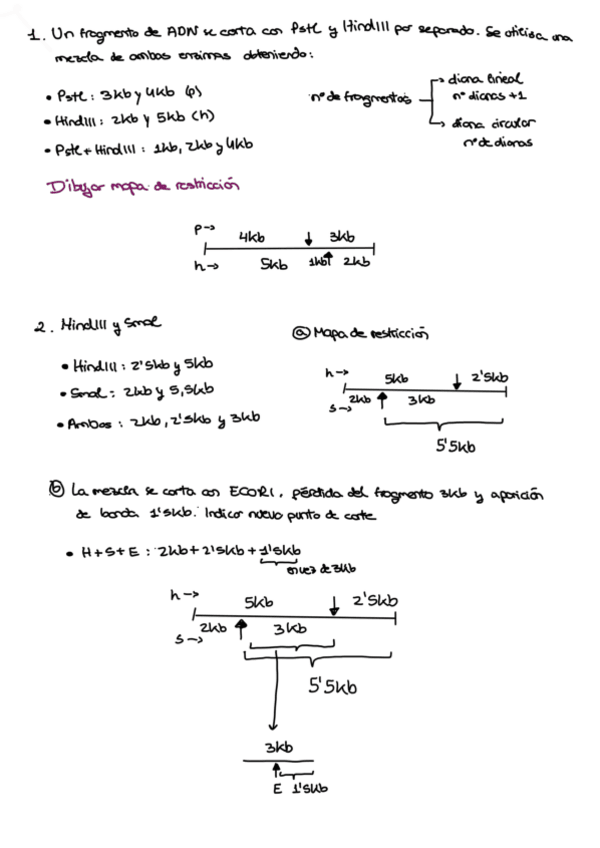 1. Un fragmento de ADN se corta con PstI y HindIII por separado. Se utiliza una
mezcla de ambos enzimas obteniendo:
• PstI: 3kb y 4kb (p)
• HindIII: 2kb y 5kb (h)
• PstI + HindIII: 1kb, 2kb y 4kb
nº de fragmentos
diana lineal
nº dianas + 1
diana circular
nº de dianas
Dibujar mapa de restricción
p->
4kb 3kb
h-> 5kb 1kb 2kb
2. HindIII y SmaI
• HindIII: 2'5kb y 5kb
• SmaI: 2kb y 5,5kb
• Ambos: 2kb, 2'5kb y 3kb
a Mapa de restricción
h->
5kb 2'5kb
s-> 2kb 3kb
5'5kb
b La mezcla se corta con ECORI, pérdida del fragmento 3kb y aparición
de banda 1'5kb. Indicar nuevo punto de corte
• H+S+E: 2kb + 2'5kb + 1'5kb
en vez de 3kb
h->
5kb 2'5kb
s-> 2kb 3kb
5'5kb
3kb
E 1'5kb